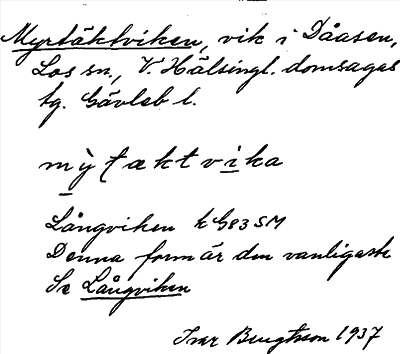 Myrtäktviken, vik i Dåasen,
Los sn, V. Hälsingl. domsagas
tg. Gävleb l.
mỳtæktvika
Långviken k G83 SM
Denna form är den vanligaste
Se Långviken
Ivar Bengtsson 1937